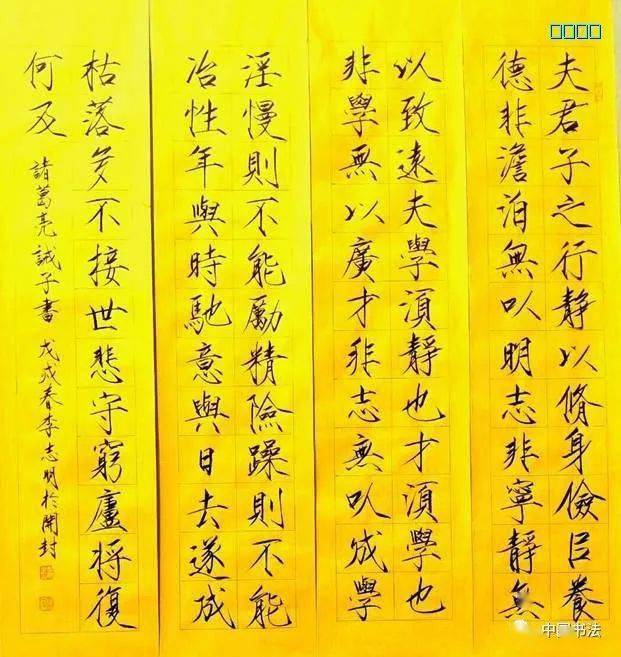 夫君子之行靜以脩身儉以養
德非澹泊無以明志非寧靜無
以致遠夫學須靜也才須學也
非學無以廣才非志無以成學
淫慢則不能勵精險躁則不能
冶性年與時馳意與日去遂成
枯落多不接世悲守窮廬將復
何及
諸葛亮誡子書 戊戌春李志明於開封
中国书法